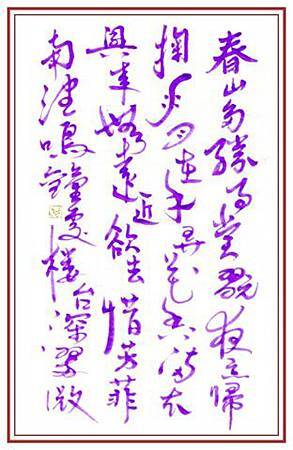 春山多勝事賞翫夜忘歸
掬水月在手弄花香滿衣
興來無遠近欲去惜芳菲
南望鳴鐘處樓台深翠微